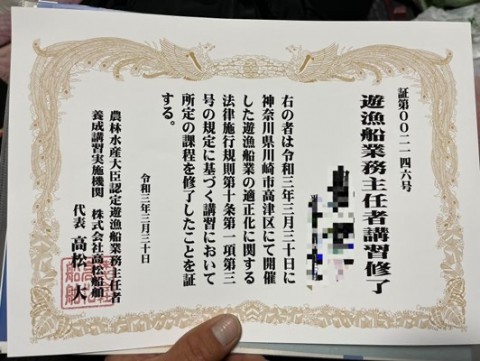 証第００２１４６号
遊漁船業務主任者講習修了
右の者は令和三年三月三十日に
神奈川県川崎市高津区にて開催
した遊漁船業の適正化に関する
法律施行規則第十条第一項第三
号の規定に基づく講習において
所定の課程を修了したことを証
する。
令和三年三月三十日
農林水産大臣認定遊漁船業務主任者
養成講習実施機関　株式会社高松船舶
代表　高松　大